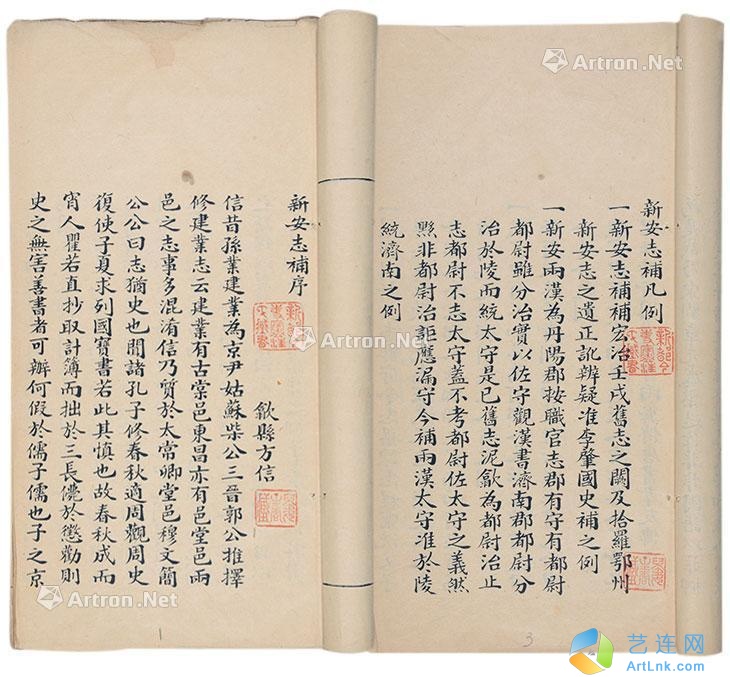 新安志補凡例
一新安志補補宏治壬戌舊志之闕及拾羅鄂州
新安志之遺正訛辨疑准李肇國史補之例
一新安兩漢為丹陽郡按職官志郡有守有都尉
都尉雖分治實以佐守觀漢書濟南郡都尉分
治於陵而統太守是已舊志泥歙為都尉治止
志都尉不志太守蓋不考都尉佐太守之義然
黟非都尉治詎應漏守今補兩漢太守准於陵
統濟南之例
3
新安志補序
歙縣方信
信昔孫業建業為京尹姑蘇柴公三晉郭公推擇
修建業志云建業有古棠邑東昌亦有邑堂邑兩
邑之志事多混淆信乃質於太常卿堂邑穆文簡
公公曰志猶史也聞諸孔子修春秋適周觀周史
復使子夏求列國寶書若此其慎也故春秋成而
宵人瞿若直抄取計簿而拙於三長於懲勸則
史之無害善書者可辦何假於儒子儒也子之京
1
Artron.Net
Artron.Net
Artron.Net
Artron.Net
艺连网
ArtLnk.com